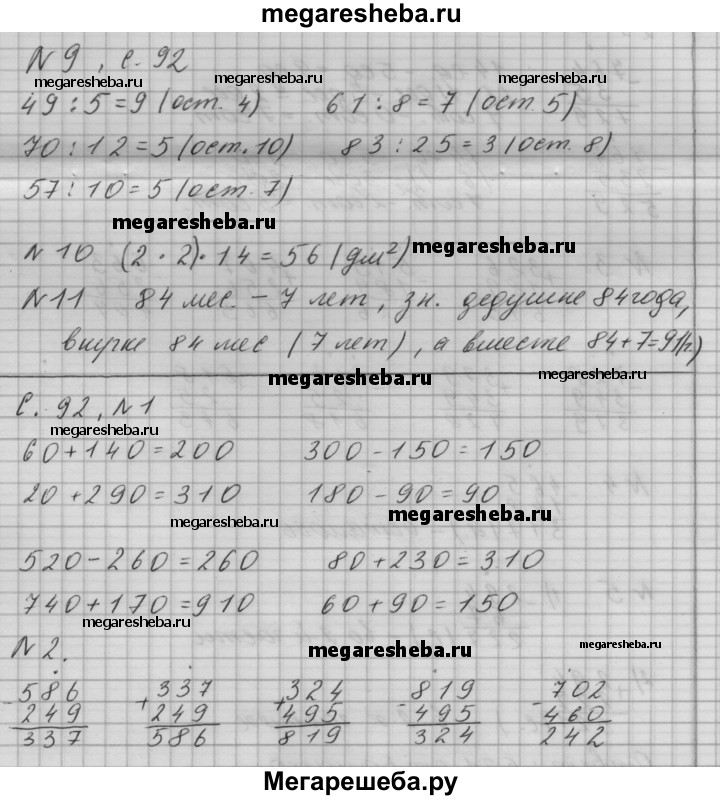 megaresheba.ru
N 9, с. 92
megaresheba.ru megaresheba.ru megaresheba.ru
49 : 5 = 9 (ост. 4) 61 : 8 = 7 (ост. 5)
70 : 12 = 5 (ост. 10) 83 : 25 = 3 (ост. 8)
57 : 10 = 5 (ост. 7)
megaresheba.ru
N 10 (2 · 2) · 14 = 56 (дм²) megaresheba.ru
N 11 84 мес. – 7 лет, зн. дедушке 84 года,
внуку 84 мес (7 лет), а вместе 84 + 7 = 91 (г.)
megaresheba.ru megaresheba.ru
С. 92, N 1
megaresheba.ru
60 + 140 = 200 300 - 150 = 150
20 + 290 = 310 180 - 90 = 90
megaresheba.ru megaresheba.ru
520 - 260 = 260 80 + 230 = 310
740 + 170 = 910 60 + 90 = 150
megaresheba.ru
N 2. megaresheba.ru megaresheba.ru
- 586 + 337 + 324 - 819 - 702
249 249 495 495 460
337 586 819 324 242
megaresheba.ru megaresheba.ru
Мегарешеба.ру